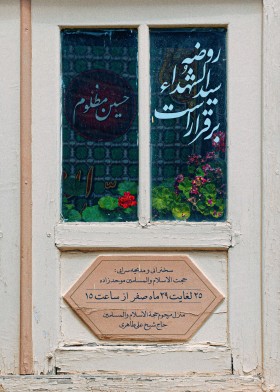 روضه
سیدالشهداء
برقرار است
حسین مظلوم
سخنرانی و مدیحه سرایی:
حجت الاسلام والمسلمین موحدزاده
۲۵ لغایت ۲۹ ماه صفر از ساعت ۱۵
منزل مرحوم حجة الاسلام والمسلمین
حاج شیخ علی طاهری